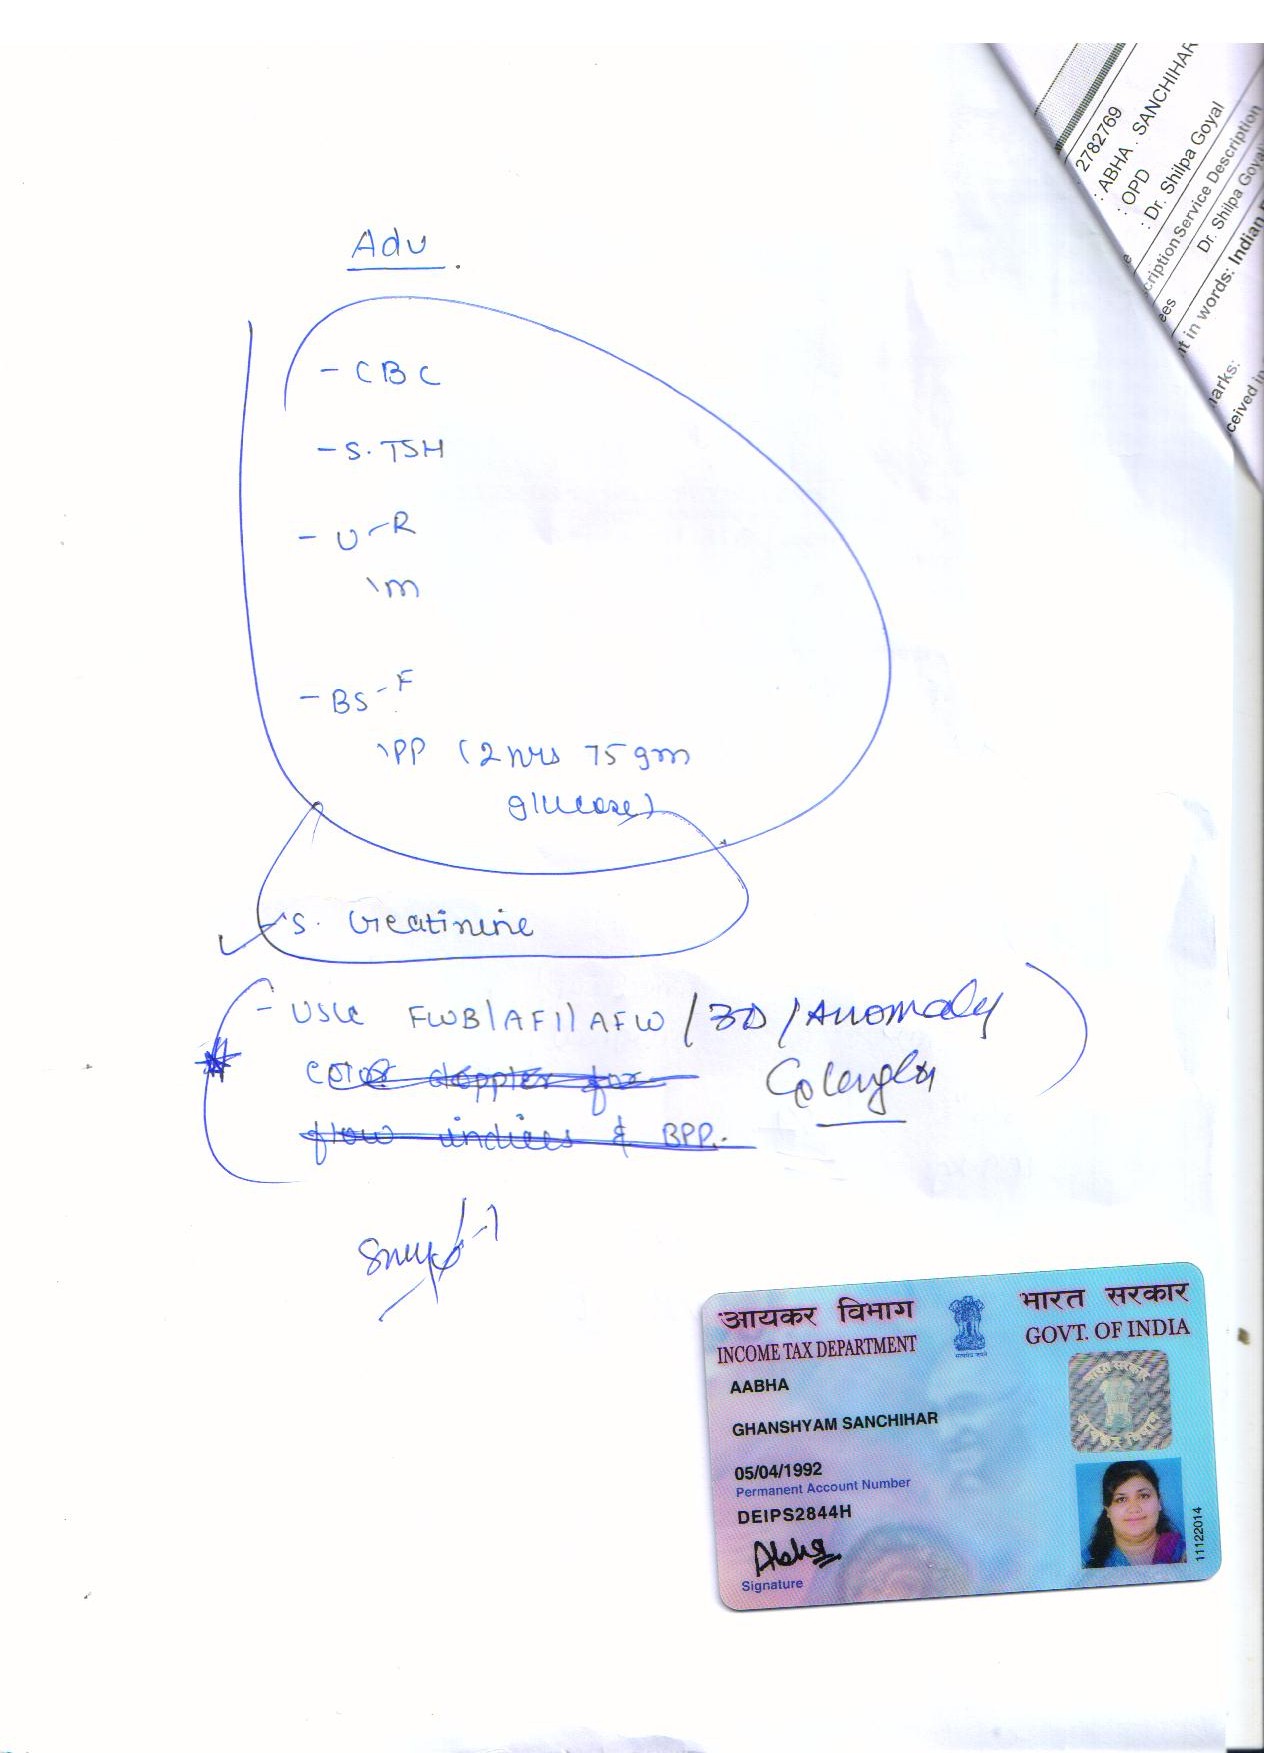 2782769
: ABHA . SANCHIHAR
: OPD
: Dr. Shilpa Goyal
cription Service Description
Dr. Shilpa Goyal
ees
nt in words: Indian
marks:
ceived in
Adv.
- CBC
- S. TSH
- U - R
\ M
- BS - F
\ PP (2 hrs 75 gm
glucose)
S. Creatinine
- USG FWB/AFI/AFW/3D/Anomaly
color doppler for Cx length
flow indices & BPP.
आयकर विभाग
भारत सरकार
INCOME TAX DEPARTMENT
GOVT. OF INDIA
AABHA
GHANSHYAM SANCHIHAR
05/04/1992
Permanent Account Number
DEIPS2844H
Signature
11122014